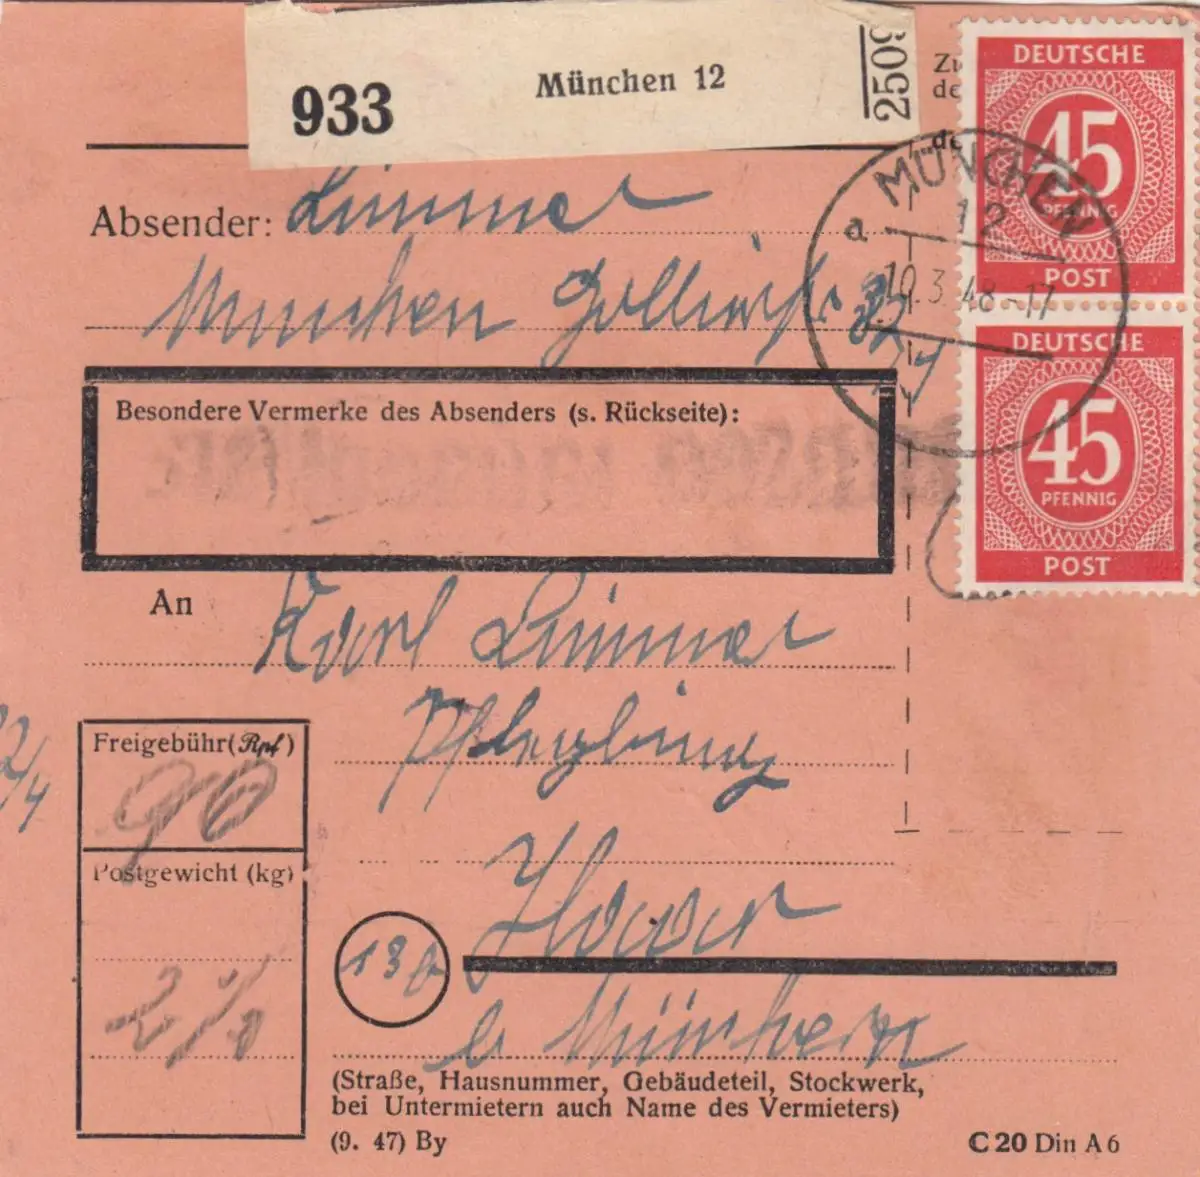 933
München 12
2509
DEUTSCHE
45
PFENNIG
POST
DEUTSCHE
45
PFENNIG
POST
MÜNCHEN
12
a
10.3.48-17
Absender: Limmer
München
Besondere Vermerke des Absenders (s. Rückseite):
An Karl Limmer
Freigebühr (Rpf)
90
Postgewicht (kg)
2
13b
Haar
b München
(Straße, Hausnummer, Gebäudeteil, Stockwerk,
bei Untermietern auch Name des Vermieters)
(9. 47) By
C 20 Din A 6